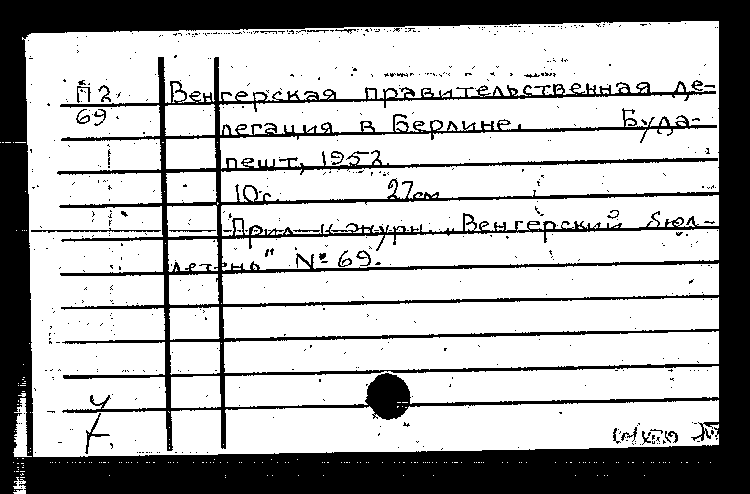 П2 Венгерская правительственная де-
69. легация в Берлине. Буда-
пешт, 1952.
10с. 27см
Прил. к журн. „Венгерский бюл-
летень" № 69.